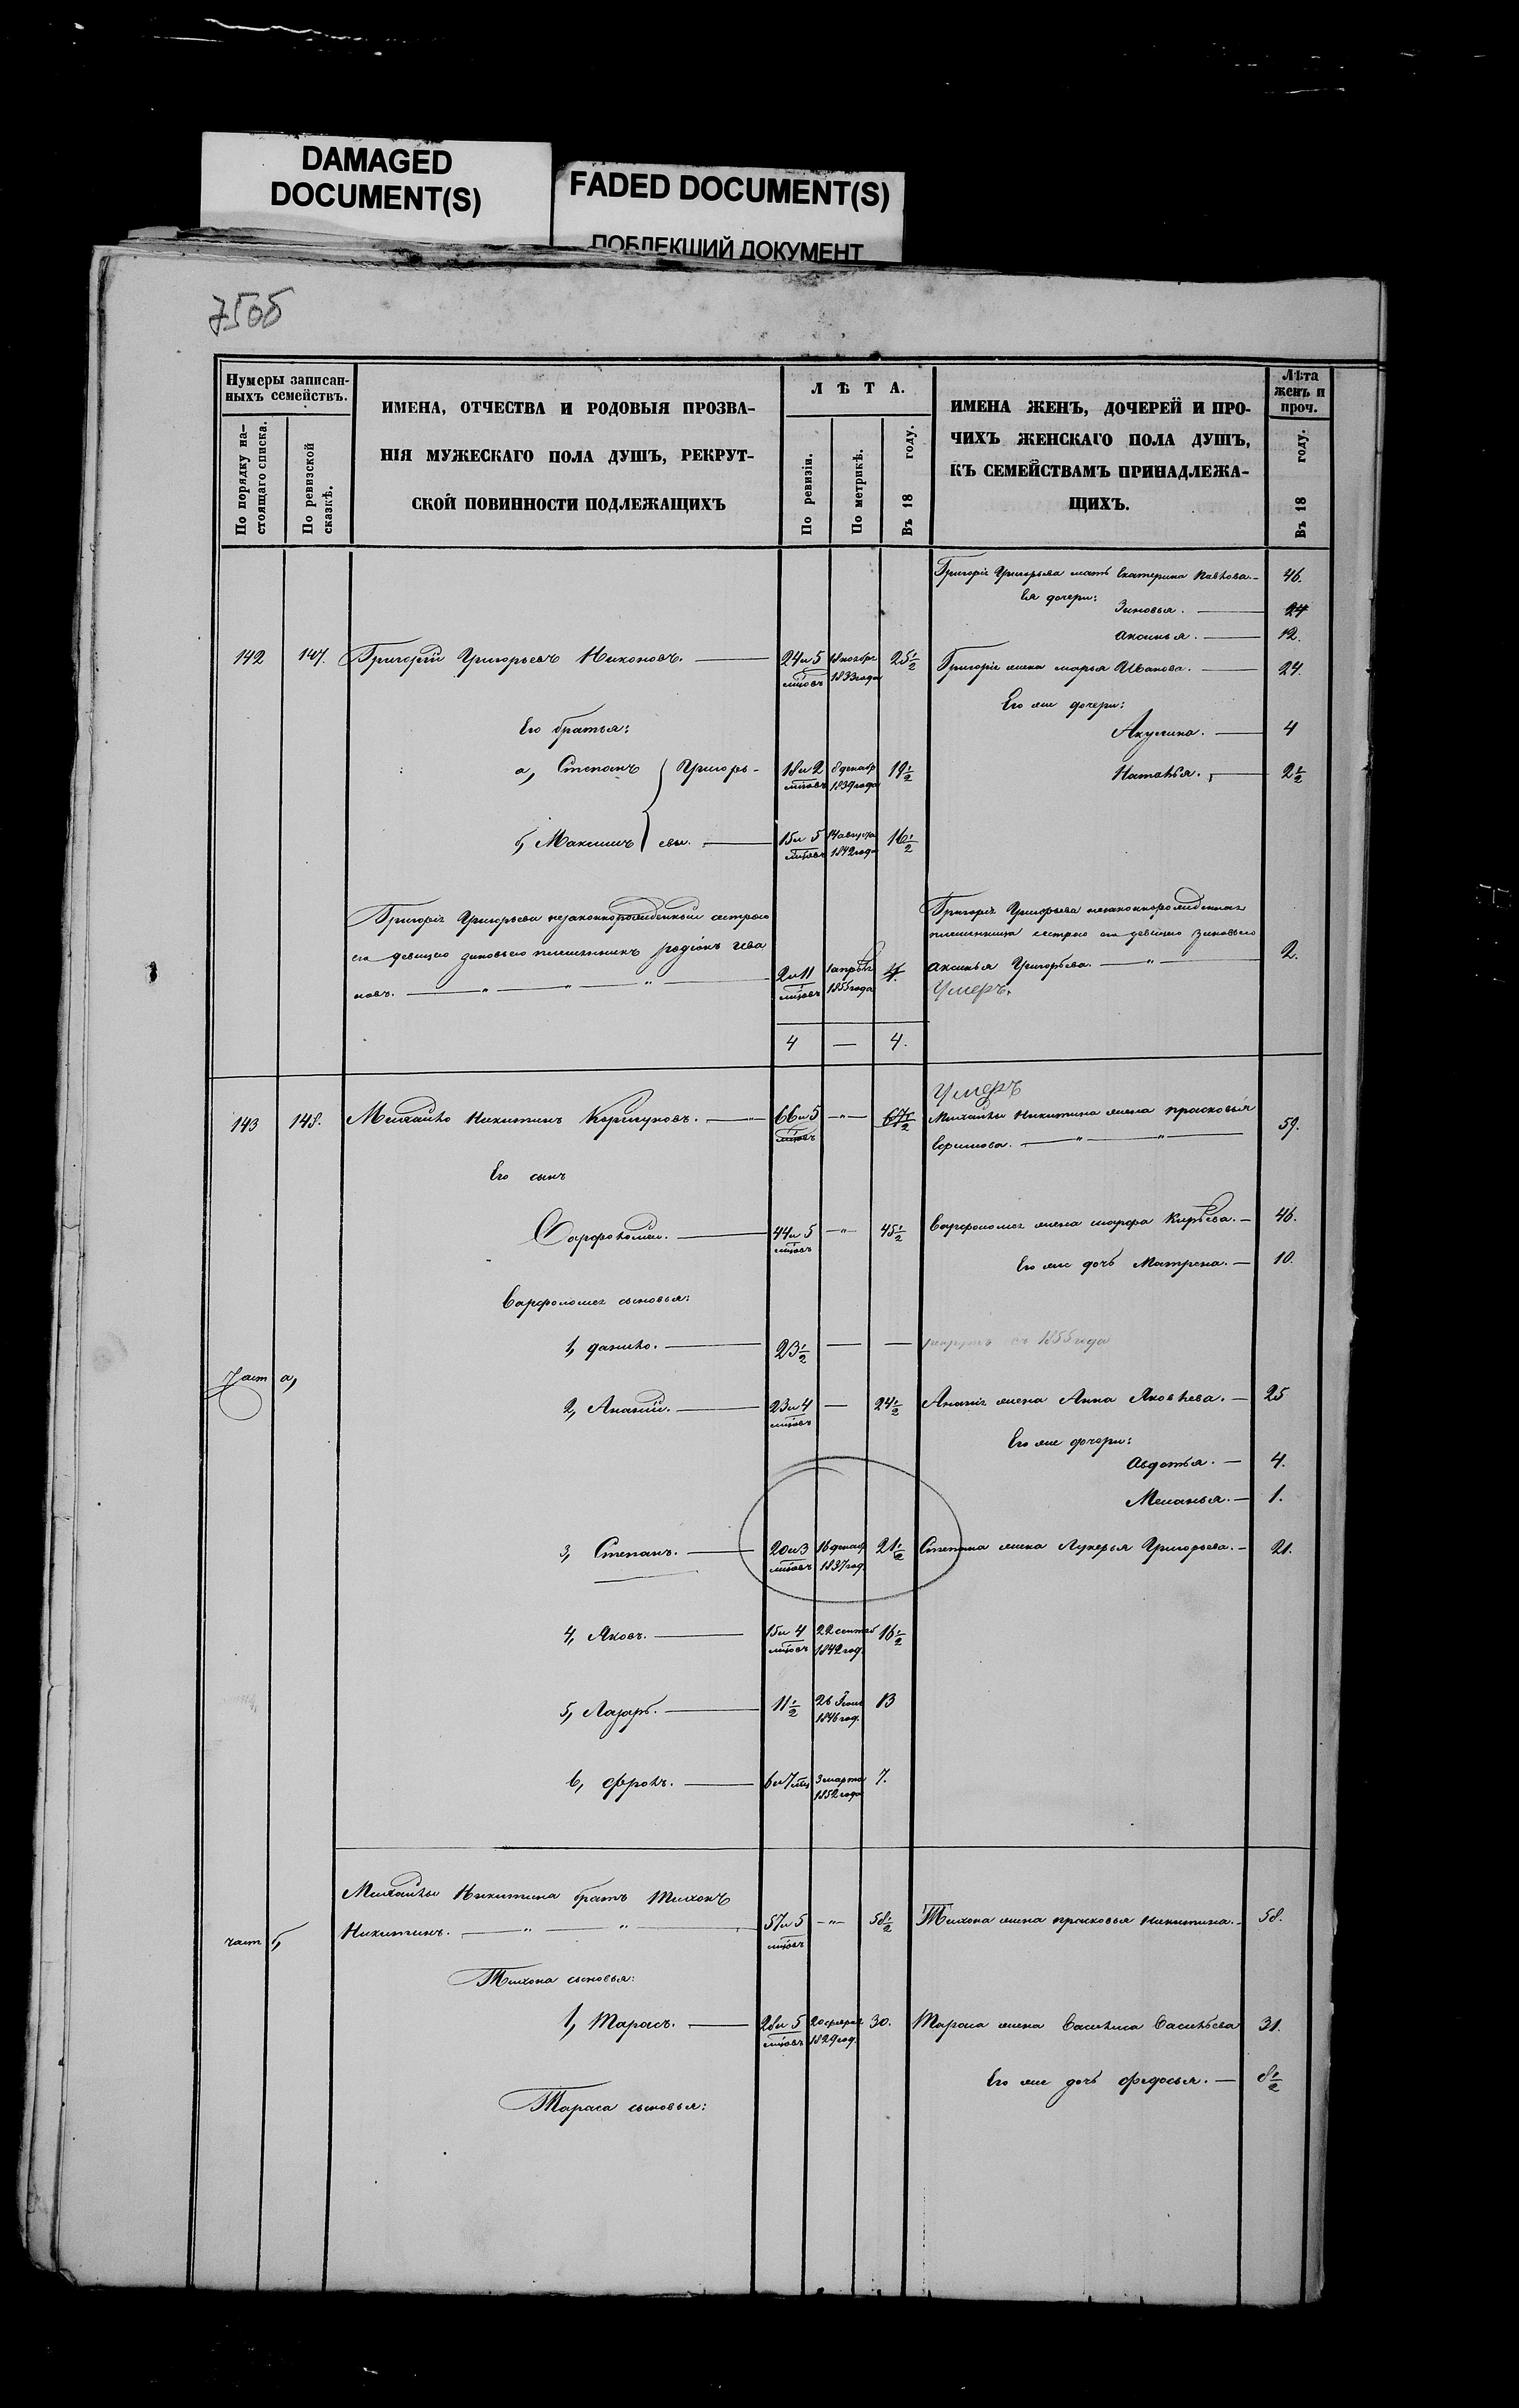 DAMAGED
DOCUMENT(S)
FADED DOCUMENT(S)
ПОБЛЕКШИЙ ДОКУМЕНТ
75об
Нумеры записан-
ныхъ семействъ.
По порядку на-
стоящаго списка.
По ревизской
сказкѣ.
ИМЕНА, ОТЧЕСТВА И РОДОВЫЯ ПРОЗВА-
НІЯ МУЖЕСКАГО ПОЛА ДУШЪ, РЕКРУТ-
СКОЙ ПОВИННОСТИ ПОДЛЕЖАЩИХЪ
ЛѢТА.
По ревизіи.
По метрикѣ.
Въ 18 году.
ИМЕНА ЖЕНЪ, ДОЧЕРЕЙ И ПРО-
ЧИХЪ ЖЕНСКАГО ПОЛА ДУШЪ,
КЪ СЕМЕЙСТВАМЪ ПРИНАДЛЕЖА-
ЩИХЪ.
Лѣта
женъ и
проч.
Въ 18 году.
Григорія Григорьева мать Екатерина Павлова. 46.
Ея дочери: Зиновья. 24
Аксинья. 12.
142 147. Григорій Григорьевъ Никоновъ. 24 и 5 мѣсяовъ 18 ноября 1833 года 25 1/2 Григорія жена Марья Иванова. 24.
Его же дочери:
Его братья: Акулина. 4
а, Степанъ Григорь- 18 и 2 мѣсяовъ 8 декабр 1839 года 19 1/2 Наталья. 2 1/2
б, Максимъ евы. 15 и 5 мѣсяовъ 14 августа 1842 года 16 1/2
Григорія Григорьева незаконнорожденный сестрою
его девицею Зиновьею племянникъ Родіонъ Ива
новъ. 2 и 11 мѣсяовъ 1 апрѣля 1855 года 4.
Григорія Григорьева незаконнорожденная
племянница сестрою его девицею Зиновьею
Аксинья Григорьева. 2.
Умеръ.
4 — 4.
Умеръ
143 148. Михайло Никитинъ Коршуновъ. 66 и 5 мѣсяовъ 67 1/2 Михайлы Никитина жена Прасковья
Ефимова. 59.
Его сынъ
Варфоломей. 44 и 5 мѣсяовъ 45 1/2 Варфоломея жена Марфа Кирѣева. 46.
Его же дочь Матрена. 10.
Варфоломея сыновья:
1, Данило. 23 1/2 — — рекрутъ съ 1855 года
Част а,
2, Ананій. 23 и 4 мѣсяовъ — 24 1/2 Ананія жена Анна Яковлева. 25
Его же дочери:
Авдотья. 4.
Меланья. 1.
3, Степанъ. 20 и 3 мѣсяовъ 16 декаб 1837 год. 21 1/2 Степана жена Лукерья Григорьева. 21.
4, Яковъ. 15 и 4 мѣсяовъ 22 сентяб 1842 год. 16 1/2
5, Лазарь. 11 1/2 26 1846 год. 13
6, Фролъ. 6 и 7 мѣс 3 марта 1852 года 7.
Михайлы Никитина братъ Тихонъ
част б, Никитинъ. 57 и 5 мѣсяовъ 58 1/2 Тихона жена Прасковья Никитина. 58.
Тихона сыновья:
1, Тарасъ. 28 и 5 мѣсяовъ 20 феврал 1829 год. 30. Тараса жена Василиса Васильева 31.
Его же дочь Федосья. 8 1/2
Тараса сыновья: